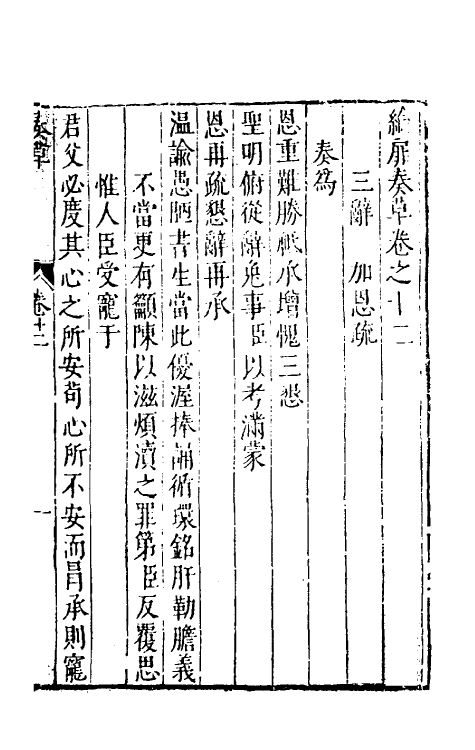 綸扉奏草卷之十二
三辭　加恩疏
奏爲
恩重難勝祗承增愧三懇
聖明俯從辭免事臣以考滿蒙
恩再疏懇辭再承
温諭愚陋書生當此優渥捧誦循環銘肝勒膽義
不當更有籲陳以滋煩瀆之罪第臣反覆思
惟人臣受寵于
君父必度其心之所安苟心所不安而冒承則寵
奏草
卷十二
一